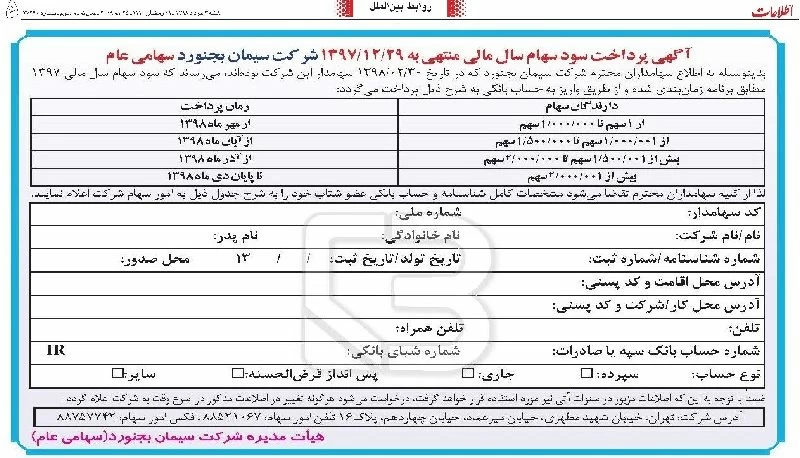 اطلاعات
روابط بین‌الملل
آگهی پرداخت سود سهام سال مالی منتهی به ۱۳۹۷/۱۲/۲۹ شرکت سیمان بجنورد سهامی عام
بدینوسیله به اطلاع سهامداران محترم شرکت سیمان بجنورد که در تاریخ ۱۳۹۸/۰۲/۳۰ سهامدار این شرکت بوده‌اند، می‌رساند که سود سهام سال مالی ۱۳۹۷
مطابق برنامه زمان‌بندی شده و از طریق واریز به حساب بانکی به شرح ذیل پرداخت می‌گردد:
دارندگان سهام زمان پرداخت
از ۱ سهم تا ۱/۰۰۰/۰۰۰ سهم از مهر ماه ۱۳۹۸
از ۱/۰۰۰/۰۰۱ سهم تا ۱/۵۰۰/۰۰۰ سهم از آبان ماه ۱۳۹۸
بیش از ۱/۵۰۰/۰۰۱ سهم تا ۲/۰۰۰/۰۰۰ سهم از آذر ماه ۱۳۹۸
بیش از ۲/۰۰۰/۰۰۱ سهم تا پایان دی ماه ۱۳۹۸
لذا از کلیه سهامداران محترم تقاضا می‌شود مشخصات کامل شناسنامه و حساب بانکی عضو شتاب خود را به شرح جدول ذیل به امور سهام شرکت اعلام نمایند.
کد سهامدار: شماره ملی:
نام/نام شرکت: نام خانوادگی: نام پدر:
شماره شناسنامه/شماره ثبت: تاریخ تولد/تاریخ ثبت: / / ۱۳ محل صدور:
آدرس محل اقامت و کد پستی:
آدرس محل کار/شرکت و کد پستی:
تلفن: تلفن همراه:
شماره حساب بانک سپه یا صادرات: شماره شبای بانکی: IR
نوع حساب: سپرده: جاری: پس انداز قرض‌الحسنه: سایر:
ضمنا با توجه به این که اطلاعات مزبور در سنوات آتی نیز مورد استفاده قرار خواهد گرفت، درخواست می‌شود هرگونه تغییر در اطلاعات مذکور در اسرع وقت به شرکت اعلام گردد.
آدرس شرکت: تهران، خیابان شهید مطهری، خیابان میرعماد، خیابان چهاردهم، پلاک ۱۶ تلفن امور سهام: ۸۸۵۲۱۰۶۷ ، فکس امور سهام: ۸۸۷۵۷۷۴۲
هیأت مدیره شرکت سیمان بجنورد(سهامی عام)